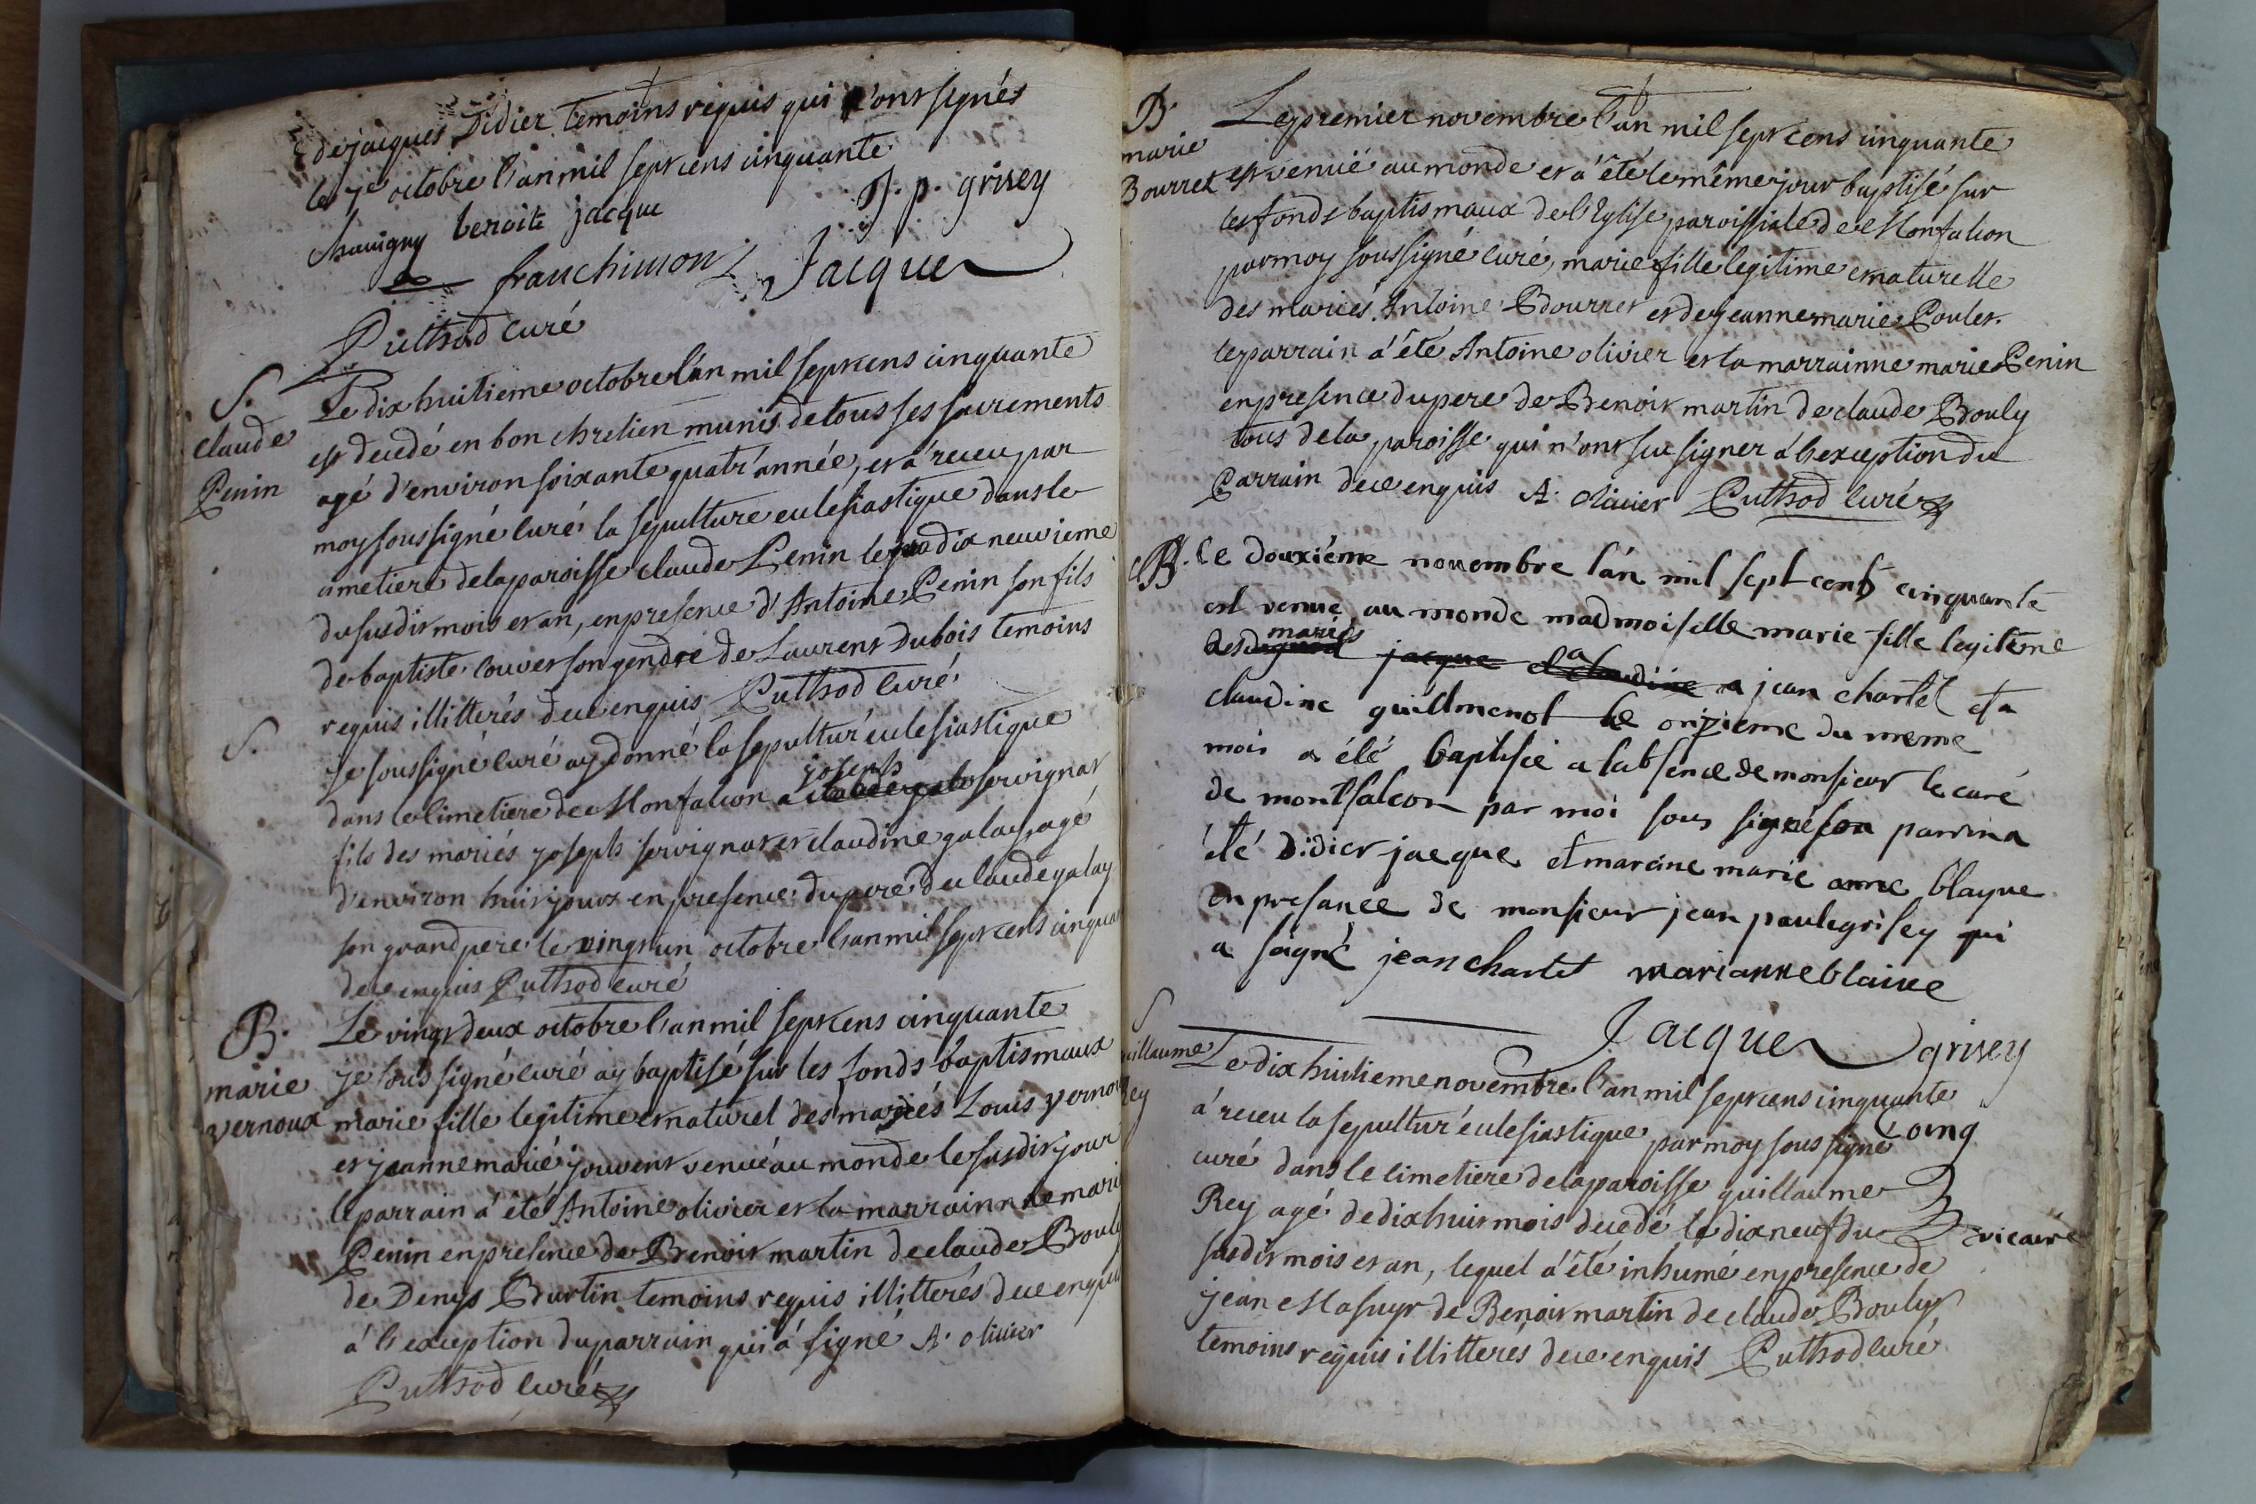 de jacques Didier temoins requis qui n'ont signés
le 7e octobre l'an mil sept cens cinquante
benoite jacque J. p. grisey
franchimont Jacque
Puthod curé
S.
claude
Penin
Le dix huitieme octobre l'an mil sept cens cinquante
est decedé en bon chretien munis de tous ses sacrements
agé d'environ soixante quatr'année, et a' receu par
moy soussigné curé la sepulture eclesiastique dans le
cimetiere de la paroisse claude Penin le dix neuvieme
du susdit mois et an, en presence d'Antoine Penin son fils
de baptiste couver son gendre de Laurent Dubois temoins
requis illitterés de ce enquis Puthod curé
S.
je soussigné curé ay donné la sepultur'eclesiastique
dans le cimetiere de Monfalcon a joseph servignat
fils des mariés joseph servignat et claudine galay agé
d'environ huit jours en presence du pere de claude galay
son grand pere le vingt un octobre l'an mil sept cens cinquan
de ce enquis Puthod curé
B.
marie
vernoux
Le vingt deux octobre l'an mil sept cens cinquante
je sous signé curé ay baptisé sur les fonds baptismaux
marie fille legitime et naturel des mariés Louis vernou
et jeanne marie jouvent venüe au monde le susdit jour
le parrain a' eté Antoine olivier et la marrainne marie
Penin en presence de Benoit martin de claude Bouly
de Denys Burtin temoins requis illitterés de ce enquis
á l'exception du parrain qui á signé A. olivier
Puthod curé
B.
marie
Bourret
Le premier novembre l'an mil sept cens cinquante
est venüe au monde et a' été le même jour baptisé sur
les fonds baptismaux de l'Eglise paroissiale de Monfalcon
par moy soussigné curé, marie fille legitime et naturelle
des mariés Antoine Bourret et de jeanne marie Poulet.
le parrain a' été Antoine olivier et la marrainne marie Penin
en presence du pere de Benoit martin de claude Bouly
tous de la paroisse qui n'ont su signer á l'exception du
Parrain de ce enquis A. olivier Puthod curé
B. Le douxiéme novembre l'an mil sept cents cinquante
est venue au monde madmoiselle marie fille legiteme
des mariés jacque claudine a jean chartel et a
claudine guillmenot le onzieme du meme
mois a été baptisée a labsence de monsieur le curé
de montfalcon par moi sous signé son parrin a
été didier jacque et marcine marie anne blayue
en presance de monsieur jean paule grisey qui
a signé jean chartet marianne blaive
Jacque grisey
Coing
vicaire
S
guillaume
Rey
Le dix huitieme novembre l'an mil sept cens cinquante
a' receu la sepultur'eclesiastique par moy sous signé
curé dans le cimetiere de la paroisse guillaume
Rey agé de dix huit mois decedé le dix neuf du
susdit mois et an, lequel a' été inhumé en presence de
jean Masuyr de Benoit martin de claude Bouly
temoins requis illitterés de ce enquis Puthod curé